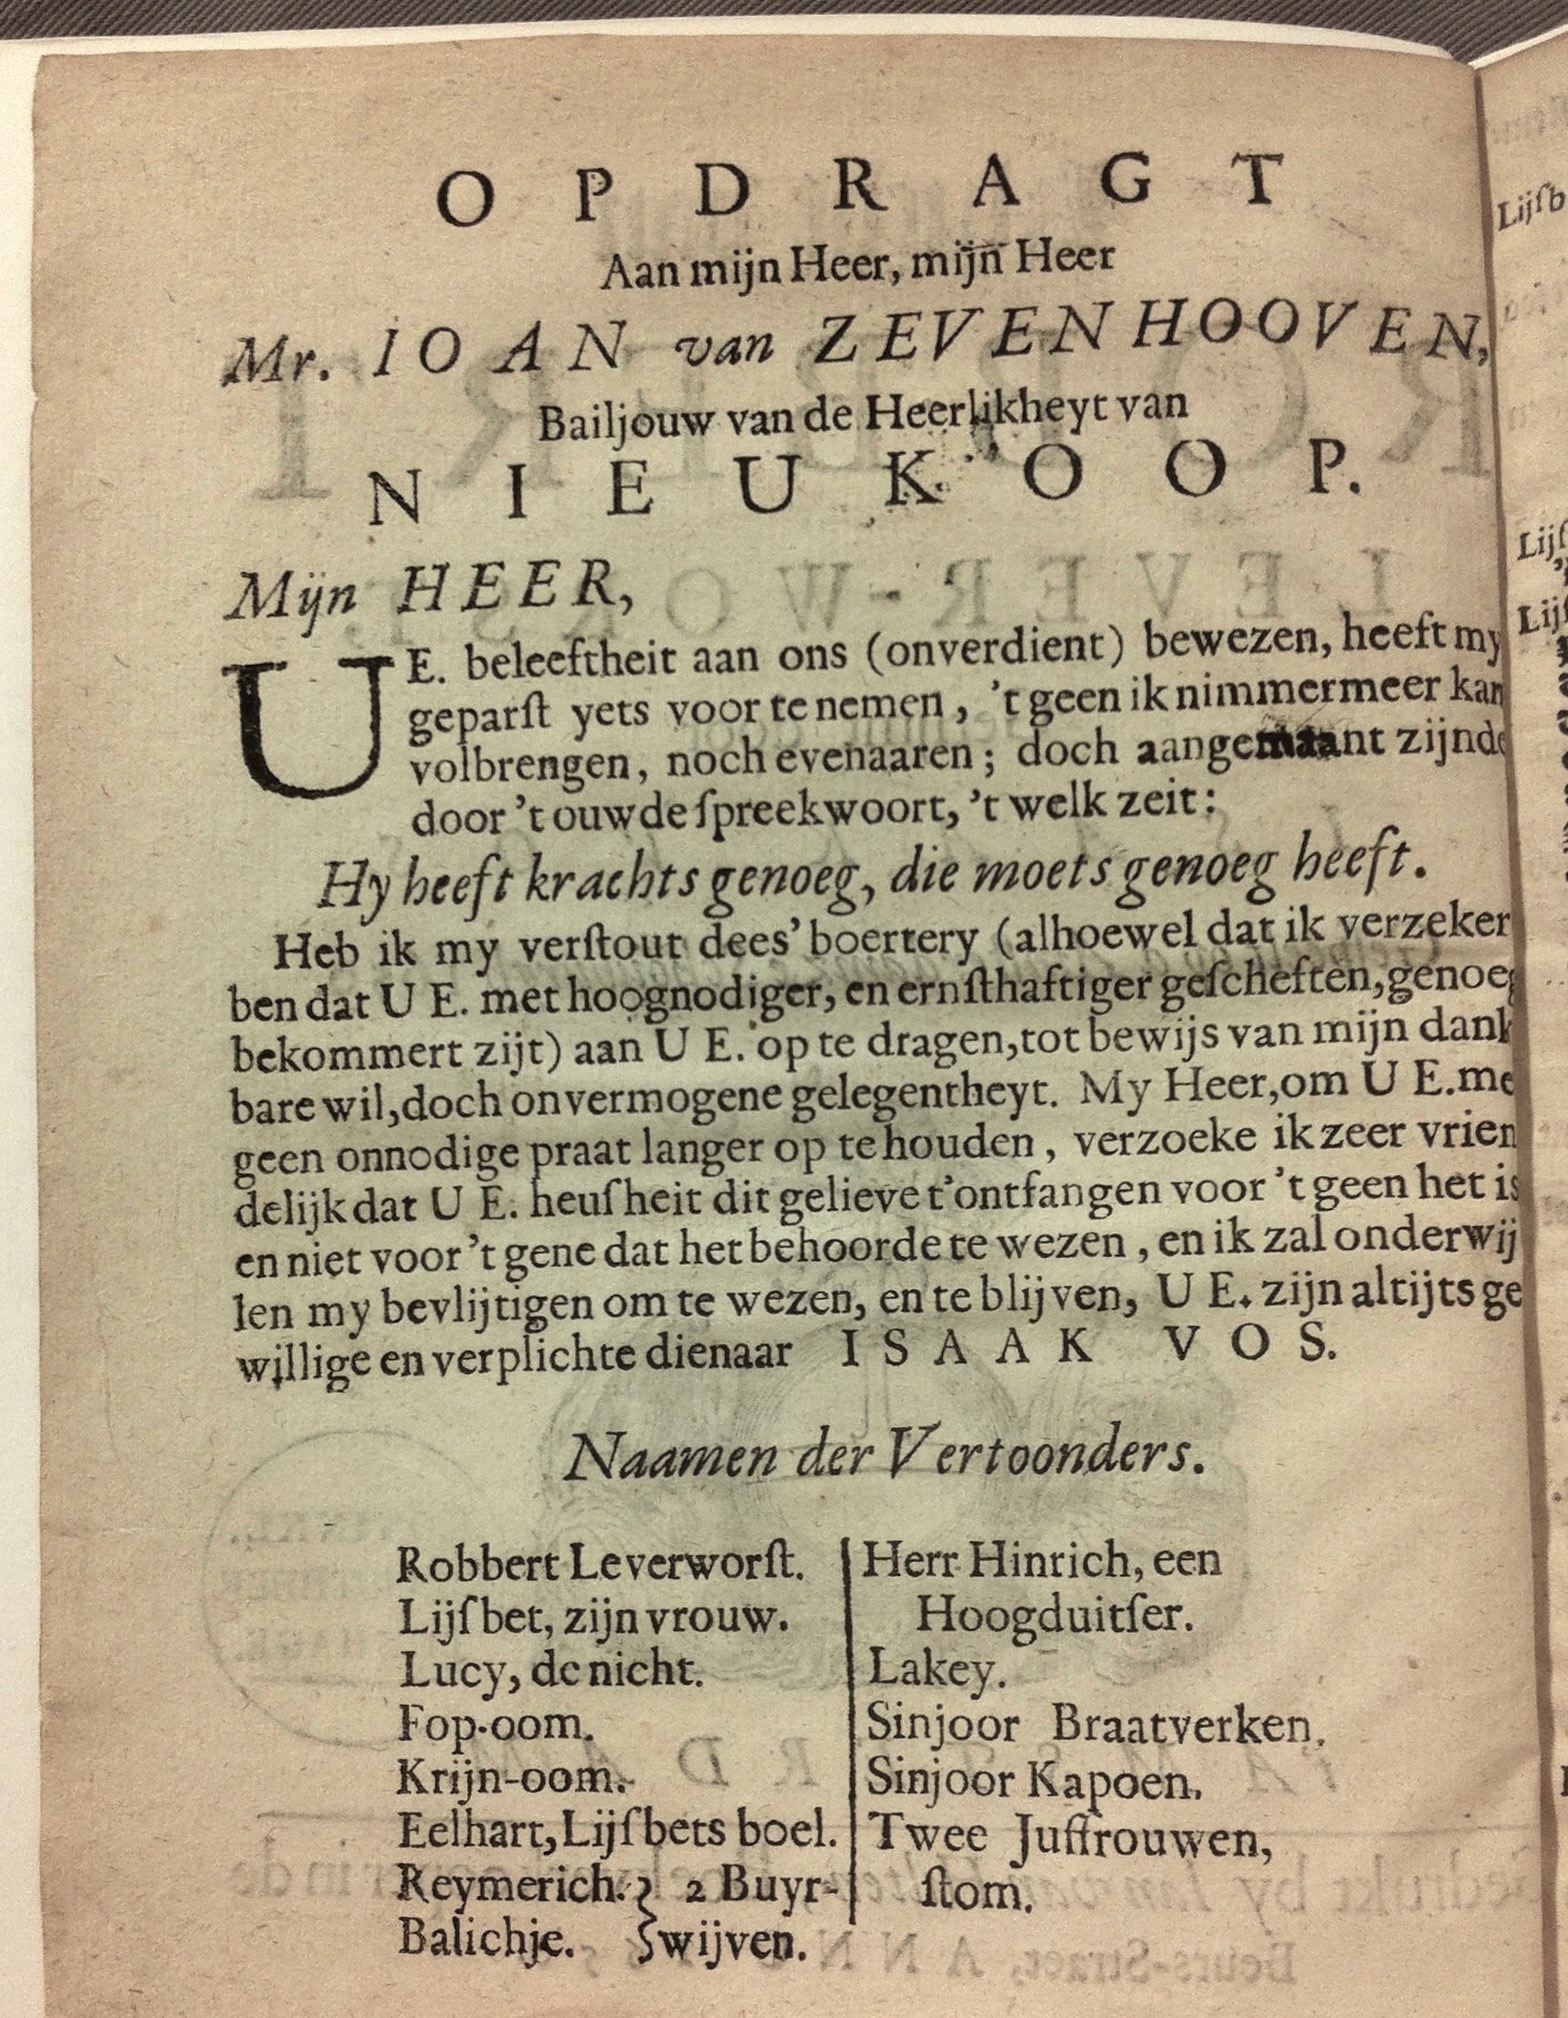 OPDRAGT
Aan mijn Heer, mijn Heer
Mr. IOAN van ZEVENHOOVEN,
Bailjouw van de Heerlijkheyt van
NIEUKOOP.
Mijn HEER,
UE. beleeftheit aan ons (onverdient) bewezen, heeft my
geparſt yets voor te nemen, 't geen ik nimmermeer kan
volbrengen, noch evenaaren; doch aangemaant zijnde
door 't ouwde ſpreekwoort, 't welk zeit:
Hy heeft krachts genoeg, die moets genoeg heeft.
Heb ik my verſtout dees' boertery (alhoewel dat ik verzeker
ben dat U E. met hoognodiger, en ernſthaftiger geſcheften, genoeg
bekommert zijt) aan U E. op te dragen, tot bewijs van mijn dank
bare wil, doch onvermogene gelegentheyt. My Heer, om U E. me
geen onnodige praat langer op te houden, verzoeke ik zeer vrien
delijk dat U E. heuſheit dit gelieve t'ontfangen voor 't geen het is
en niet voor 't gene dat het behoorde te wezen, en ik zal onderwij
len my bevlijtigen om te wezen, en te blijven, U E. zijn altijts ge
willige en verplichte dienaar ISAAK VOS.
Naamen der Vertoonders.
Robbert Leverworſt.
Lijſbet, zijn vrouw.
Lucy, de nicht.
Fop-oom.
Krijn-oom.
Eelhart, Lijſbets boel.
Reymerich. } 2 Buyr-
Balichje. } wijven.
Herr Hinrich, een
Hoogduitſer.
Lakey.
Sinjoor Braatverken.
Sinjoor Kapoen.
Twee Juffrouwen,
ſtom.